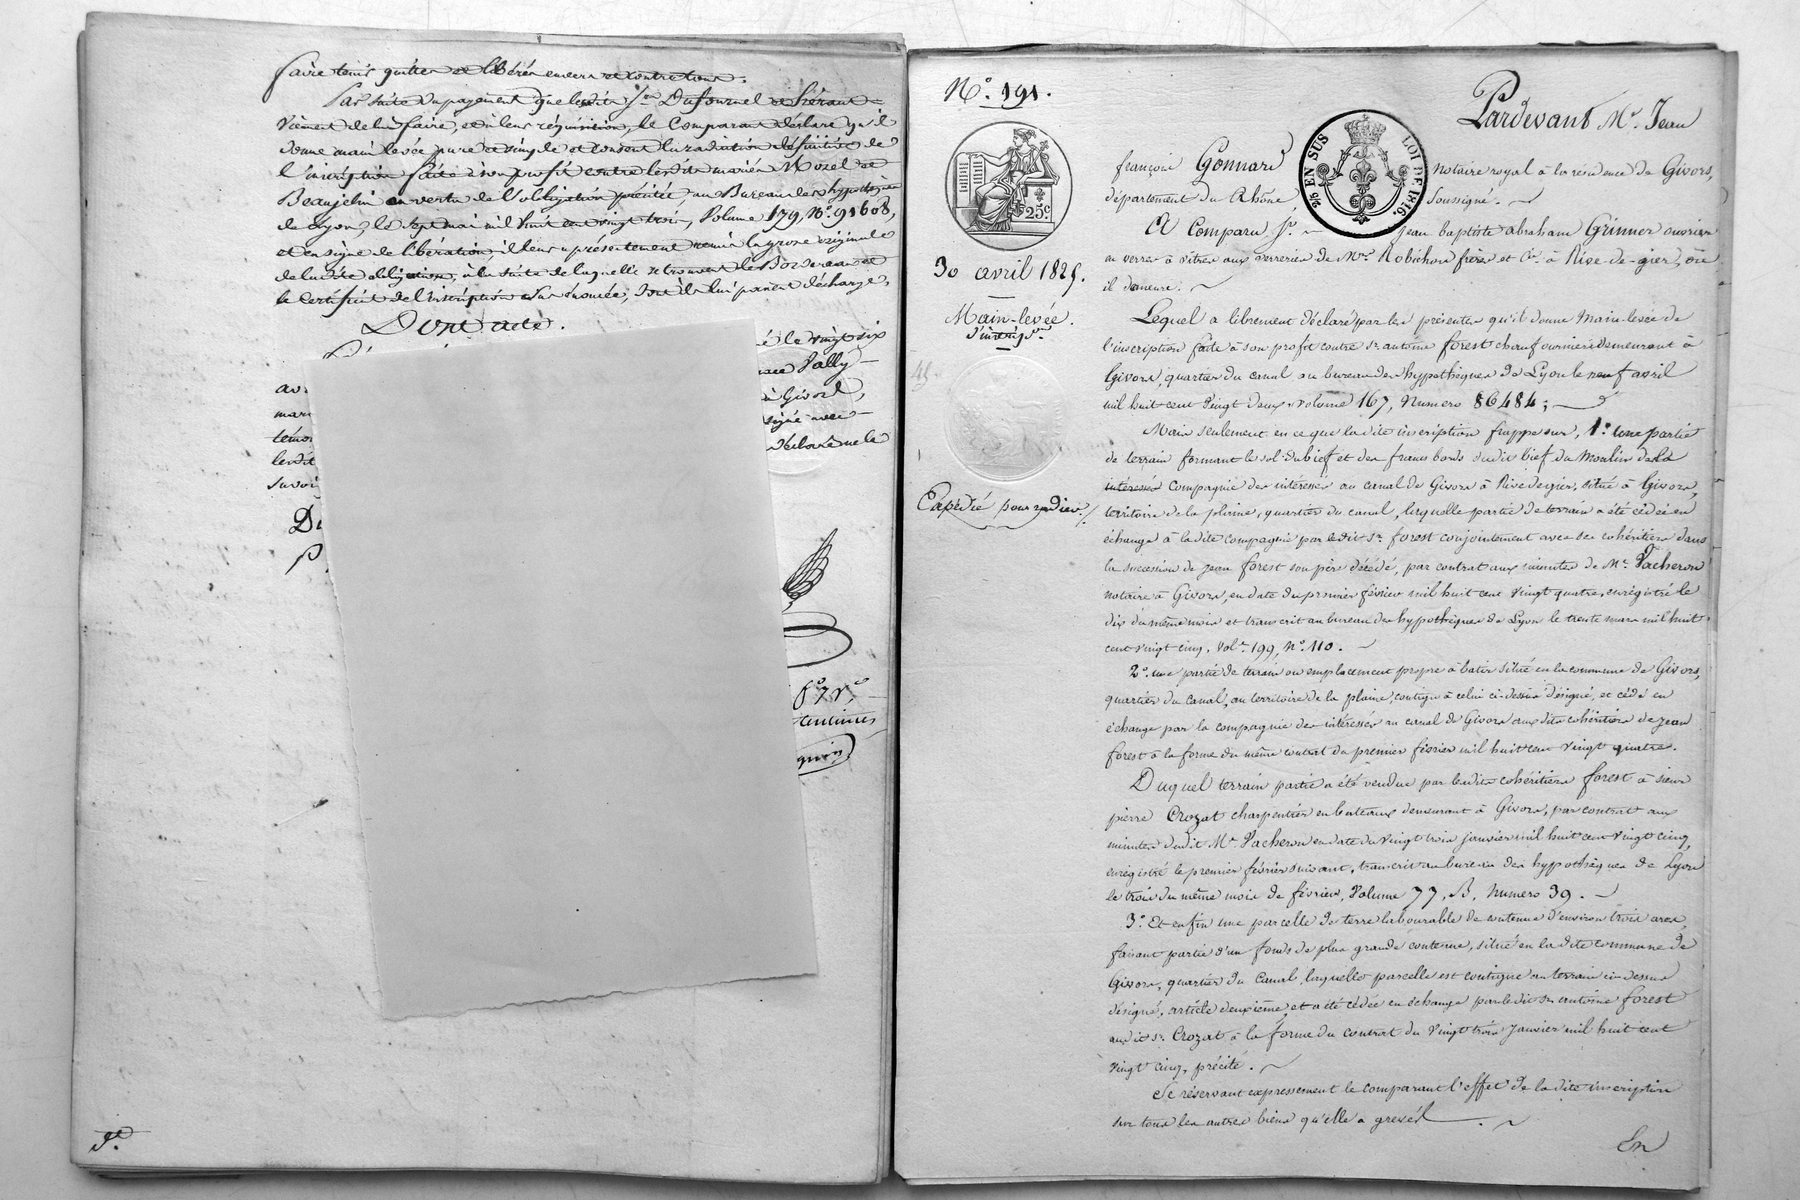 faire tenir quitte et libérer envers et contre tous.
Par suite du payement que lesdits Srs Dufournel et
viennent de lui faire, et à leur réquisition, le Comparant déclare qu'il
donne main levée pure et simple et consent la radiation définitive de
l'inscription faite à son profit contre lesdits mariés Morel et
Beaujelin en vertu de l'obligation précitée, au Bureau des hypothèques
de Lyon, le sept mai mil huit cent vingt trois, Volume 179, N.° 91608,
et en signe de libération, il leur a présentement remis la grosse originale
de ladite obligation, à la suite de laquelle se trouvent le Bordereau et
le Certificat de l'inscription sus énoncée, dont ils lui passent décharge,
Dont acte.
le vingt six
Vally
à Givors,
signé avec
déclaré ne le
centimes
N.° 191.
25c
2/5 EN SUS LOI DE 1816.
30 avril 1825.
Main-levée.
d'inscrip.on
Expédié pour radier./.
Pardevant M.e Jean
françois Gonnard notaire royal à la résidence de Givors,
département du Rhône, soussigné.
A Comparu S.r jean baptiste abraham Grinner ouvrier
en verre à vitres aux verreries de M.rs Robichon frères et C.ie à Rive-de-gier, où
il demeure.
Lequel a librement déclaré par les présentes qu'il donne Main-levée de
l'inscription faite à son profit contre S.r antoine forest chaufournier demeurant à
Givors, quartier du canal au bureau des hypothèques de Lyon le neuf avril
mil huit cent vingt deux volume 167, Numero 86484;
Mais seulement en ce que la dite inscription frappe sur, 1.° une partie
de terrain formant le sol du bief et des francs bords dudit bief du Moulin de la
intéressés compagnie des intéressés au canal de Givors à Rive de gier, situé à Givors,
territoire de la plaine, quartier du canal, laquelle partie de terrain a été cédée en
échange à la dite compagnie par ledit S.r forest conjointement avec ses cohéritiers dans
la succession de jean forest son père décédé, par contrat aux minutes de M.e Vacheron
notaire à Givors, en date du premier février mil huit cent vingt quatre, enrégistré le
dix du même mois et transcrit au bureau des hypothèques de Lyon le trente mars mil huit
cent vingt cinq, Vol.e 199, N.° 110.
2.° une partie de terrain ou emplacement propre à batir situé en la commune de Givors,
quartier du Canal, au territoire de la plaine, contigu à celui ci-dessus désigné, et cédé en
échange par la compagnie des intéressés au canal de Givors aux dits cohéritiers de jean
forest à la forme du même contrat du premier février mil huit cent vingt quatre.
Duquel terrain partie a été vendue par lesdits cohéritiers forest à sieur
pierre Crozat charpentier en bateaux demeurant à Givors, par contrat aux
minutes dudit M.e Vacheron en date du vingt trois janvier mil huit cent vingt cinq,
enrégistré le premier février suivant, transcrit au bureau des hypothèques de Lyon
le trois du même mois de février, Volume 77, B, Numero 39.
3.° Et enfin une parcelle de terre labourable de contenue d'environ trois ares,
faisant partie d'un fonds de plus grande contenue, situé en la dite commune de
Givors, quartier du Canal, laquelle parcelle est contigue au terrain ci-dessus
désigné, article deuxième, et a été cédée en échange par ledit S.r antoine forest
audit S.r Crozat à la forme du contrat du vingt trois Janvier mil huit cent
vingt cinq, précité.
Se réservant expressément le comparant l'effet de la dite inscription
sur tous les autres biens qu'elle a grevés.
En